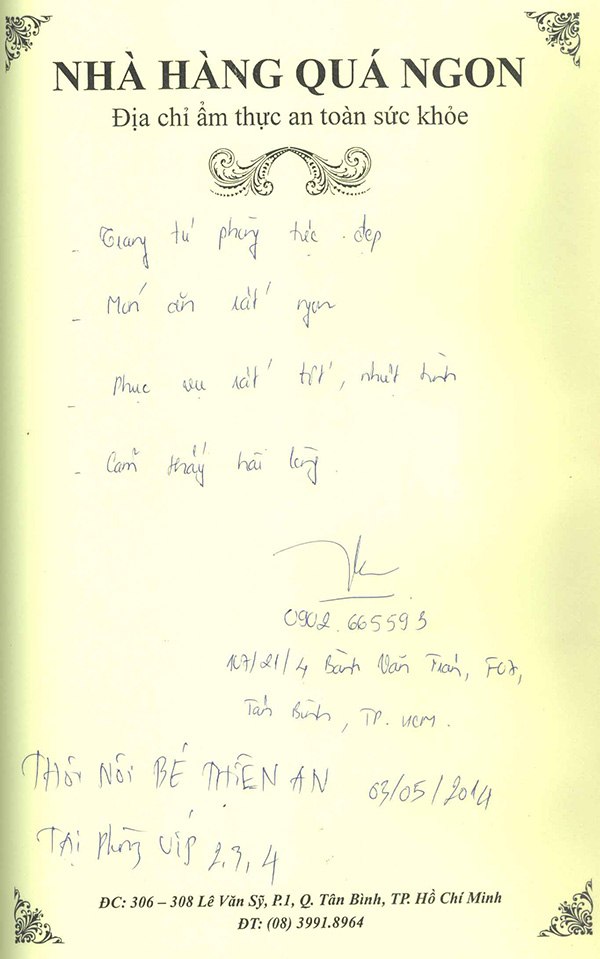 NHÀ HÀNG QUÁ NGON
Địa chỉ ẩm thực an toàn sức khỏe
- Trang trí phòng tiệc đẹp
- Món ăn rất ngon
- Phục vụ rất tốt, nhiệt tình
- Cảm thấy hài lòng.
0902.665593
107/21/4 Bành Văn Trân, F07,
Tân Bình, TP. HCM.
THÔI NÔI BÉ THIÊN AN 03/05/2014
TẠI Phòng VIP 2, 3, 4
ĐC: 306 – 308 Lê Văn Sỹ, P.1, Q. Tân Bình, TP. Hồ Chí Minh
ĐT: (08) 3991.8964